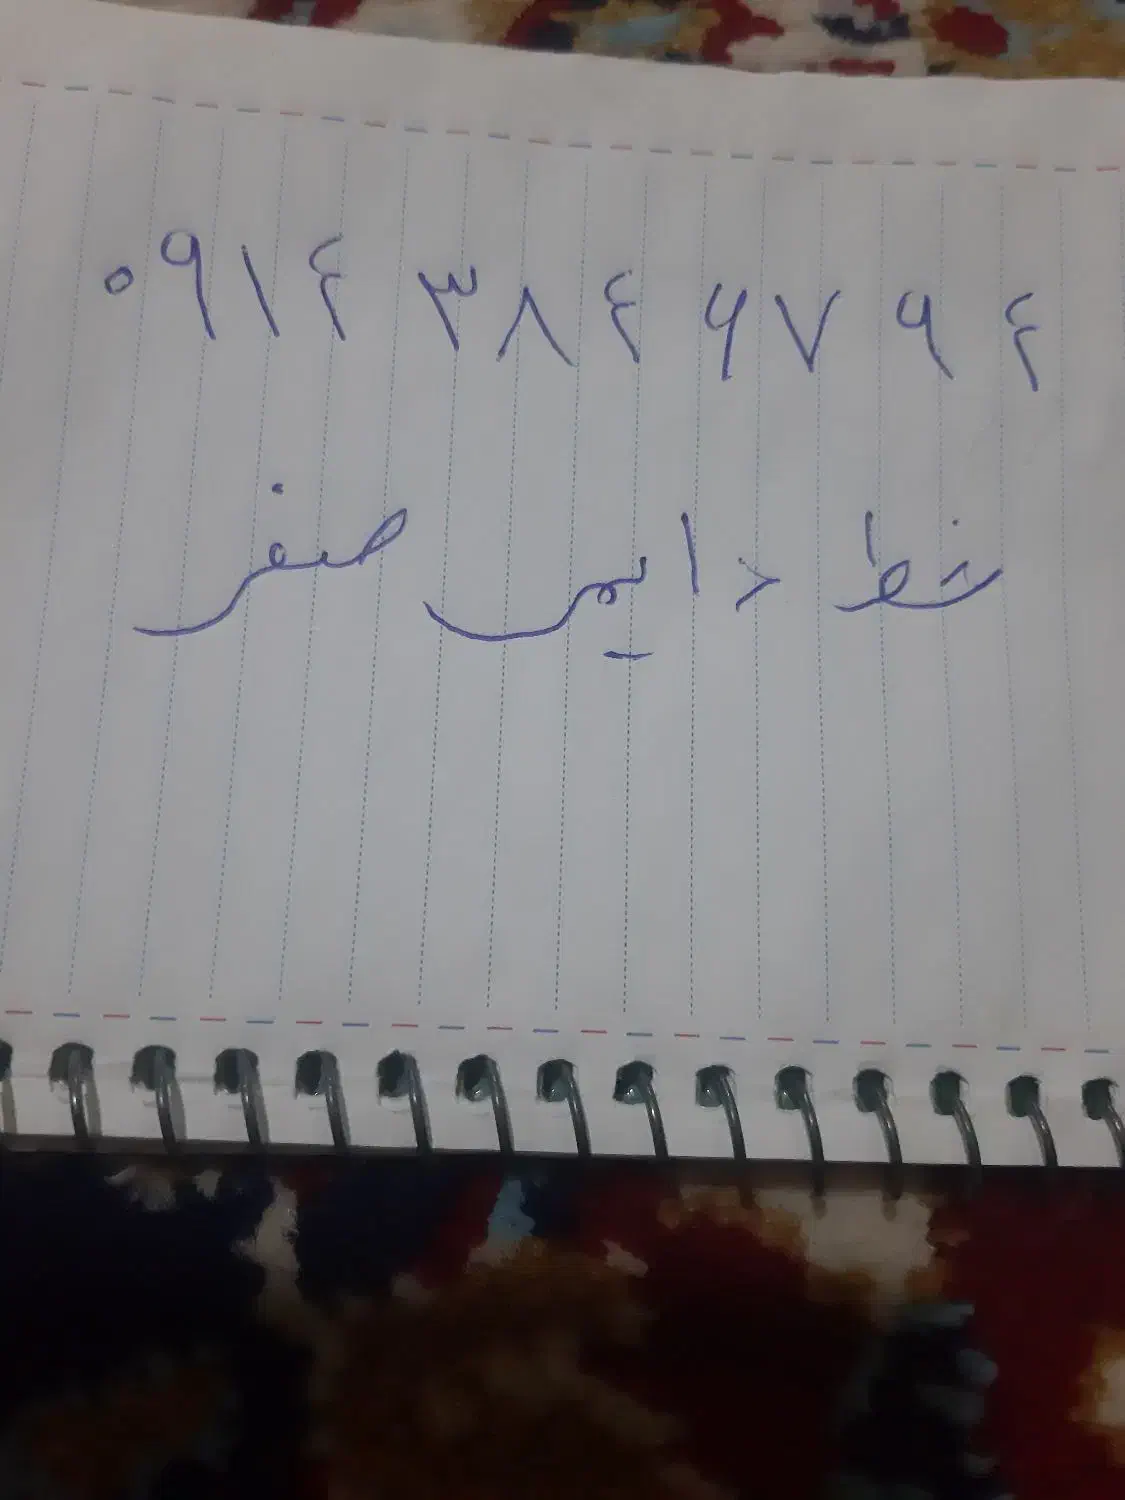 ۰۹۱۴ ۳۸۴ ۶۷ ۹۴
خط دایمی صفر